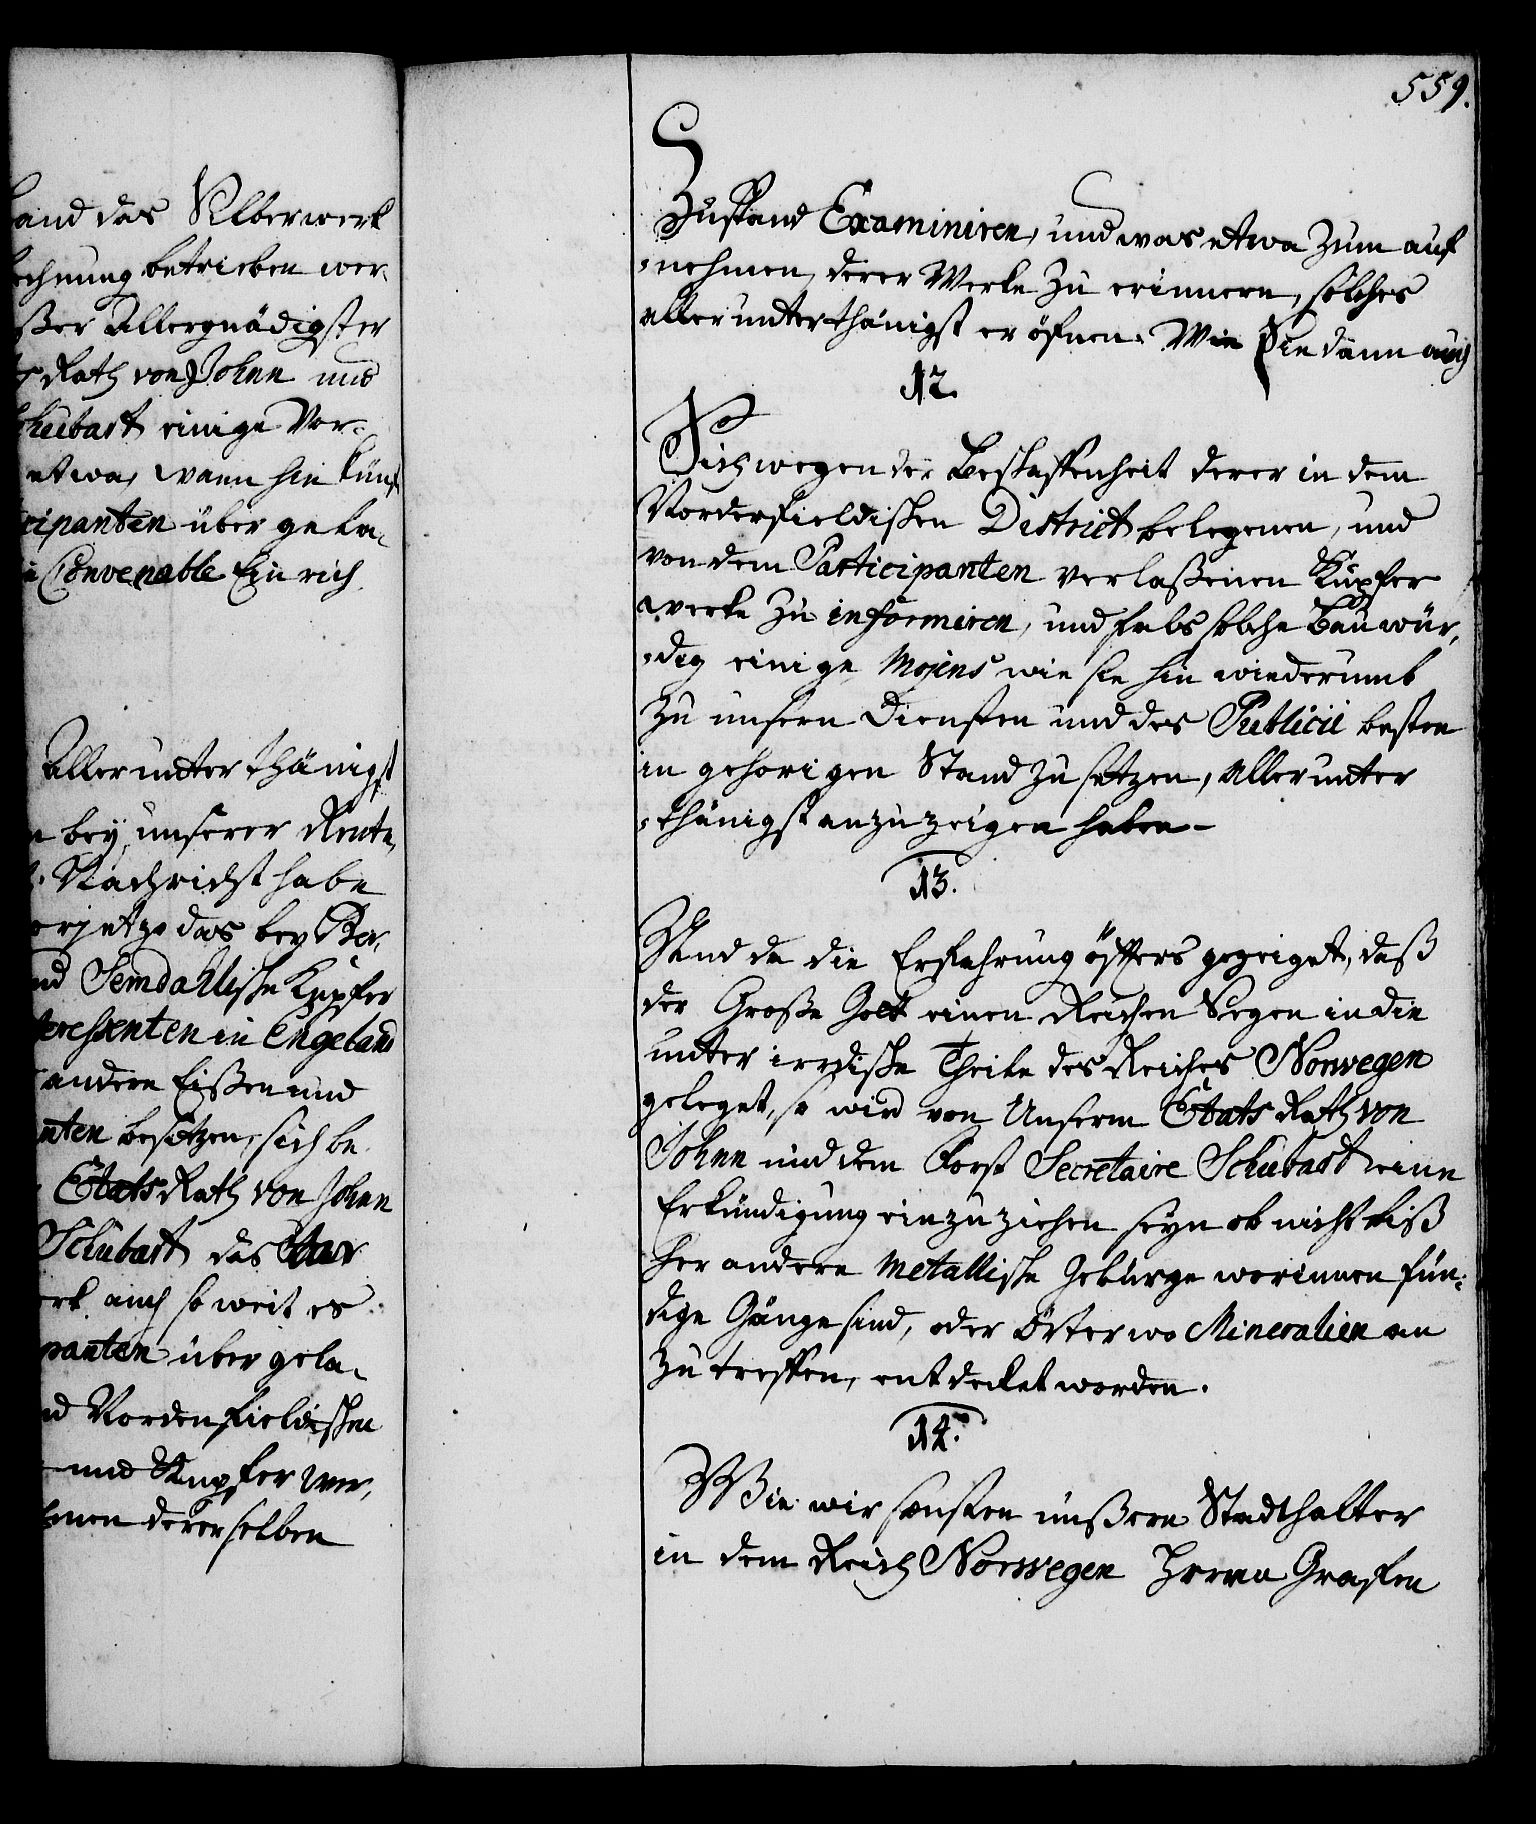 and das Silberwerk
echnung betrieben wer-
ßer Allergnädigster
Rath von Johnn und
chubart einige Vor-
etwa, wann hin künf
cipanten über gela-
Convenable Einrich
Aller unter thänigst
bey unserer Rente,
Nachricht habe
orjetzo das bey Ber,
nd Semdahlische Kupfer
teressenten in Engeland
andere Eißen und
nten besetzen, sich be
Etats Rath von Johnn
Schubart das
erk auch so weit es
panten über gela-
nd Nordenfieldischen
und Kupfer wer,
hmen dererselben
559.
Zustand Examiniren, und was etwa zum auf
=nehmen, derer Werke zu erinnern, solches
allerunterthänigst eröfnen. Wie Sie dann auch
12.
Sich wegen der Beschaffenheit derer in dem
Norderfieldischen District belegenen, und
von dem Participanten verlaßenen Kupfer
werke zu informiren, und fals solche Bauwür,
=dig einige Mojens wie sie hin wiederumb
zu unsern Diensten und des Publicii besten
in gehörigen Stand zu setzen, Allerunter
=thänigst anzuzeigen haben-
13.
Und da die Erfahrung öffters gezeiget, daß
der Große Gott einen Reichen Segen in die
unter irrdische Theile des Reiches Norwegen
geleget, so wird von Unserm Etats Rath von
Johnn und dem Forst Secretaire Schubart eine
Erkündigung einzuziehen seyn ob nicht biß
her andere Metallische Gebürge worinnen fün=
dige Gänge sind, oder Örter wo Mineralien an
zu treffen, entdecket worden.
14.
Wie wir sonsten unßern Stadthalter
in dem Reich Norwegen Herrn Grafen